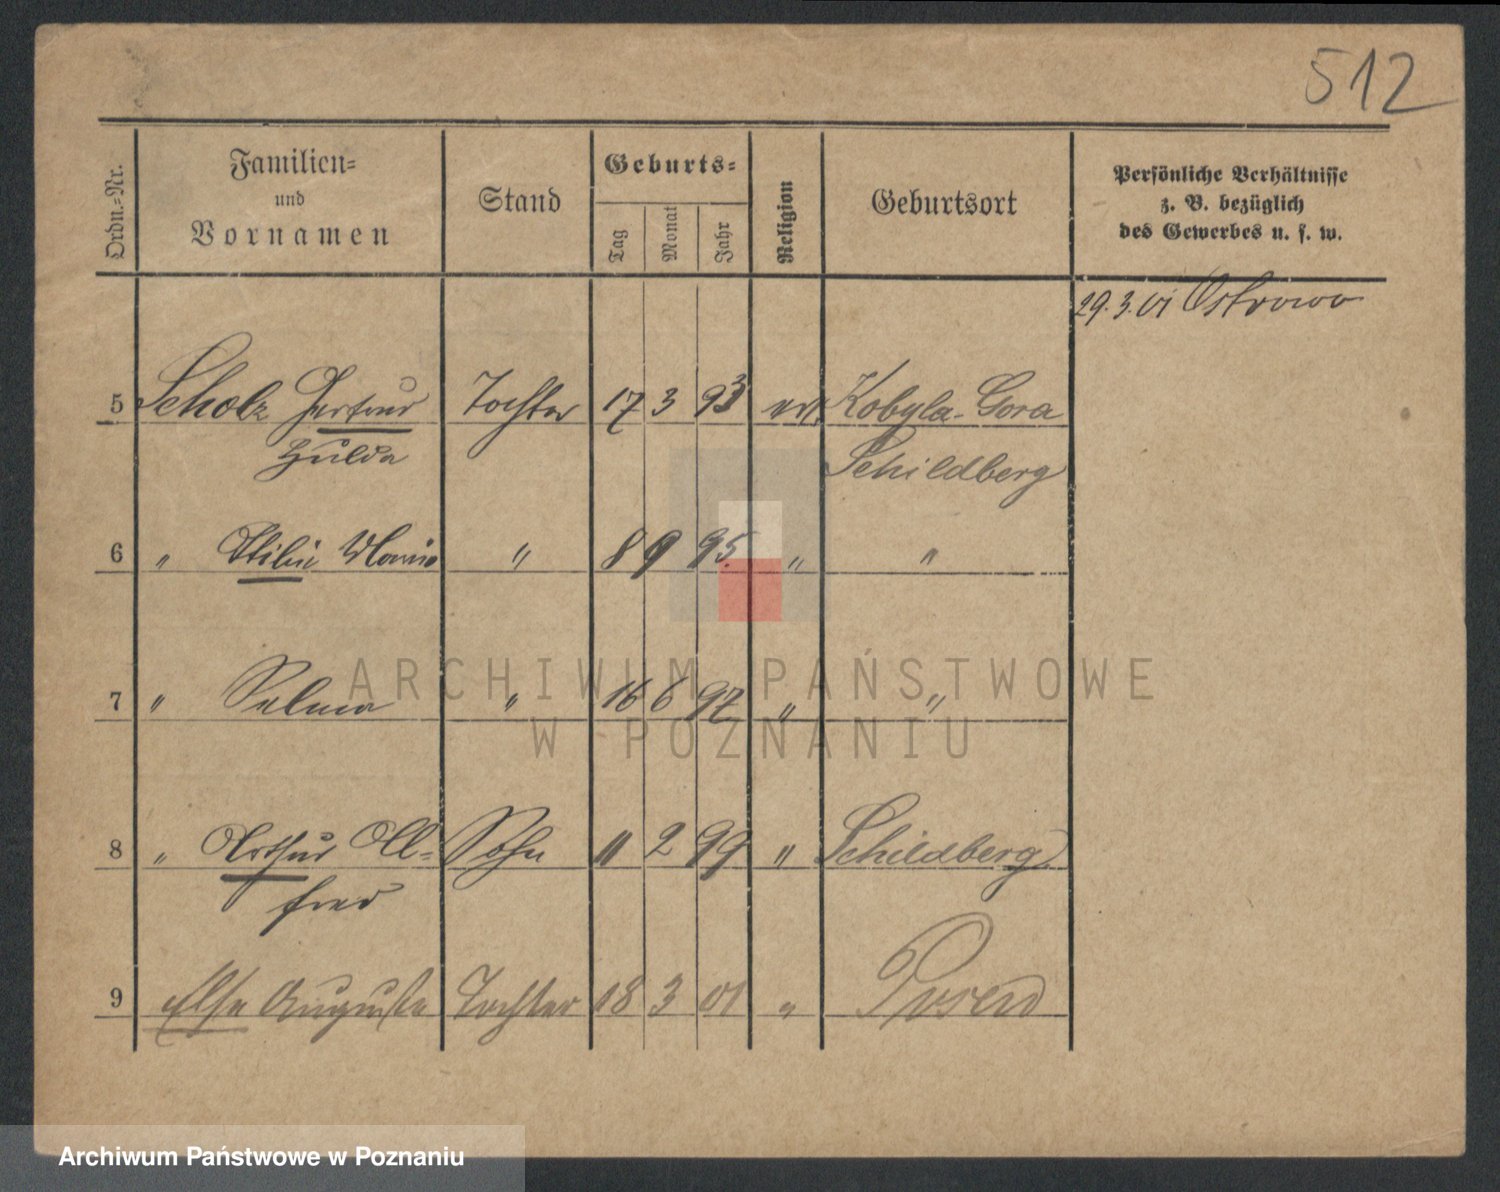 512
Ordn.-Nr.
Familien-
und
Vornamen
Stand
Geburts-
Tag
Monat
Jahr
Religion
Geburtsort
Persönliche Verhältnisse
z. B. bezüglich
des Gewerbes u. s. w.
29.3.01 Ostrowo
5 Scholz Gertrud Tochter 17 3 93 ev. Kobyla-Gora
Hulda Schildberg
6 " Ottilie " 8 9 95. " "
7 " Selma " 16 6 97 " "
8 " Arthur Al- Sohn 11 2 99 " Schildberg
fred
9 Else Auguste Tochter 18 3 01 " Posen
ARCHIWUM PAŃSTWOWE
W POZNANIU
Archiwum Państwowe w Poznaniu